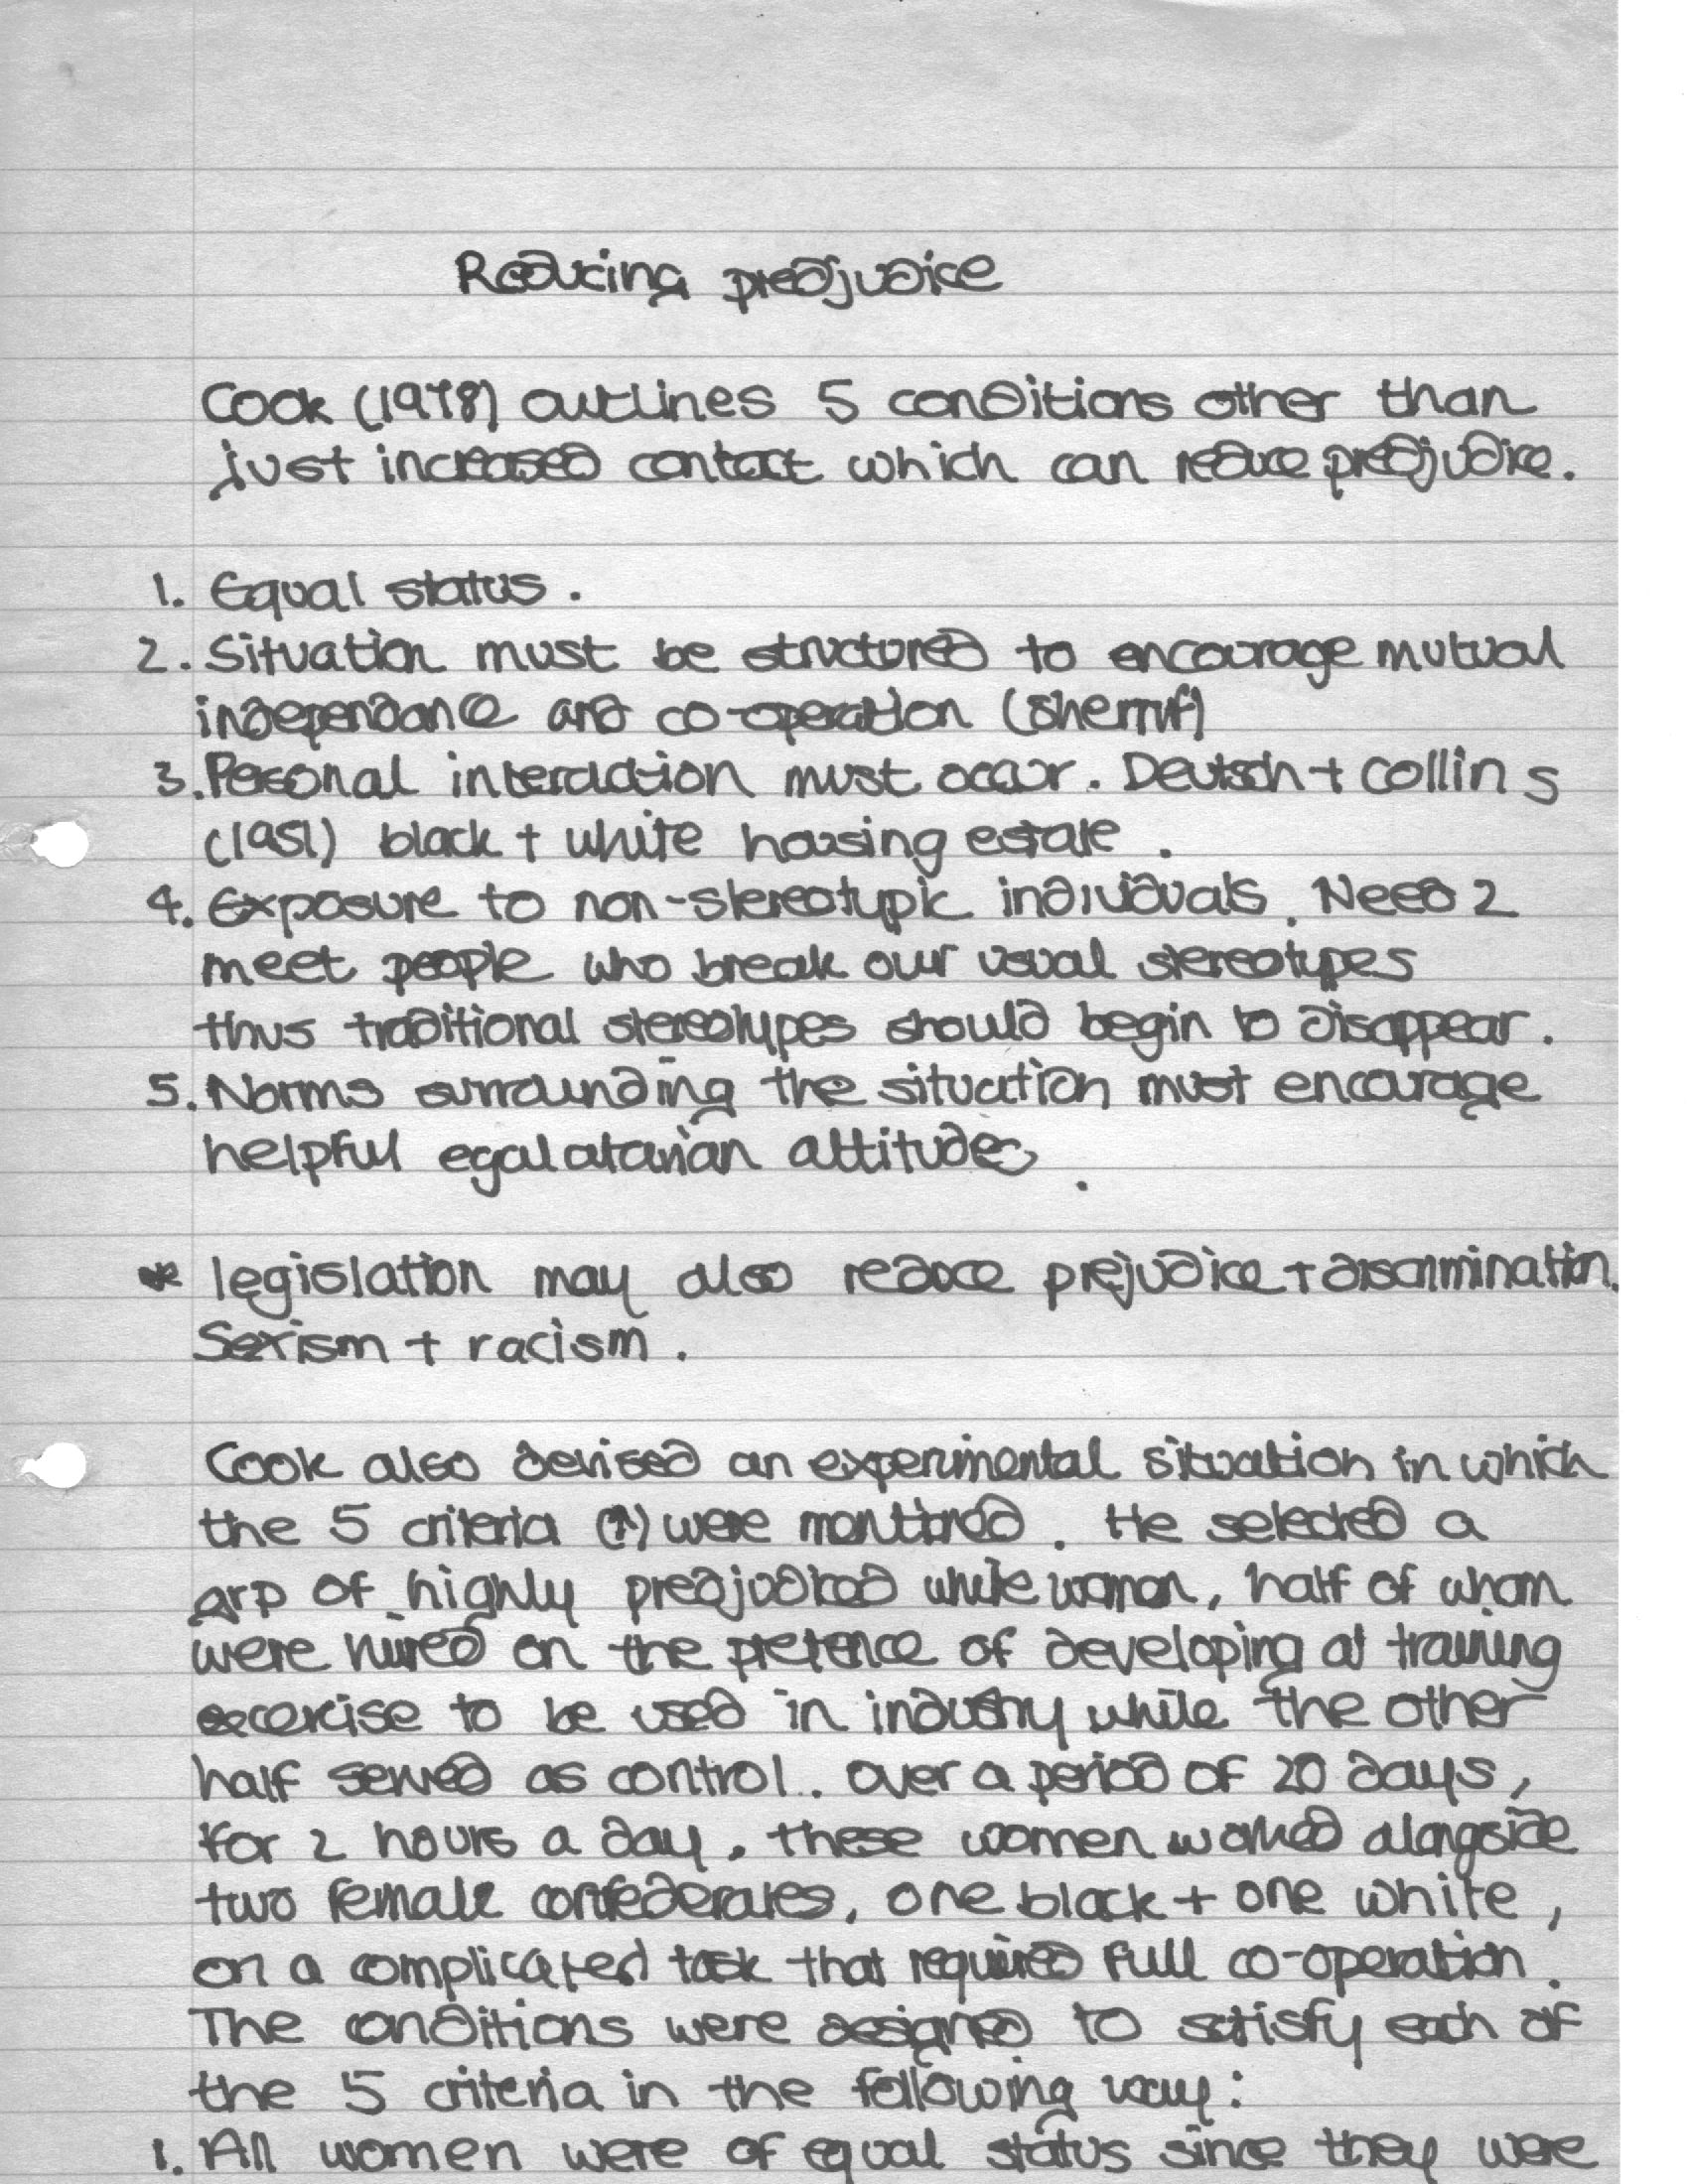 Reducing predjudice
Cook (1978) outlines 5 conditions other than
just increased contact which can reduce predjudice.
1. Equal status.
2. Situation must be structured to encourage mutual
independance and co-operation (Sherrif)
3. Personal interaction must occur. Deutsch + Collins
(1951) black + white housing estate.
4. Exposure to non-stereotypic individuals. Need 2
meet people who break our usual stereotypes
thus traditional stereotypes should begin to disappear.
5. Norms surrounding the situation must encourage
helpful egalatarian attitudes.
* legislation may also reduce prejudice + discrimination.
Sexism + racism.
Cook also devised an experimental situation in which
the 5 criteria (↑) were monitired. He selected a
grp of highly predjudiced white women, half of whom
were hired on the pretence of developing at training
excercise to be used in industry while the other
half served as control.. Over a period of 20 days,
for 2 hours a day. These women worked alongside
two female confederates, one black + one white,
on a complicated task that required full co-operation.
The conditions were designed to satisfy each of
the 5 criteria in the following way:
1. All women were of equal status since they were